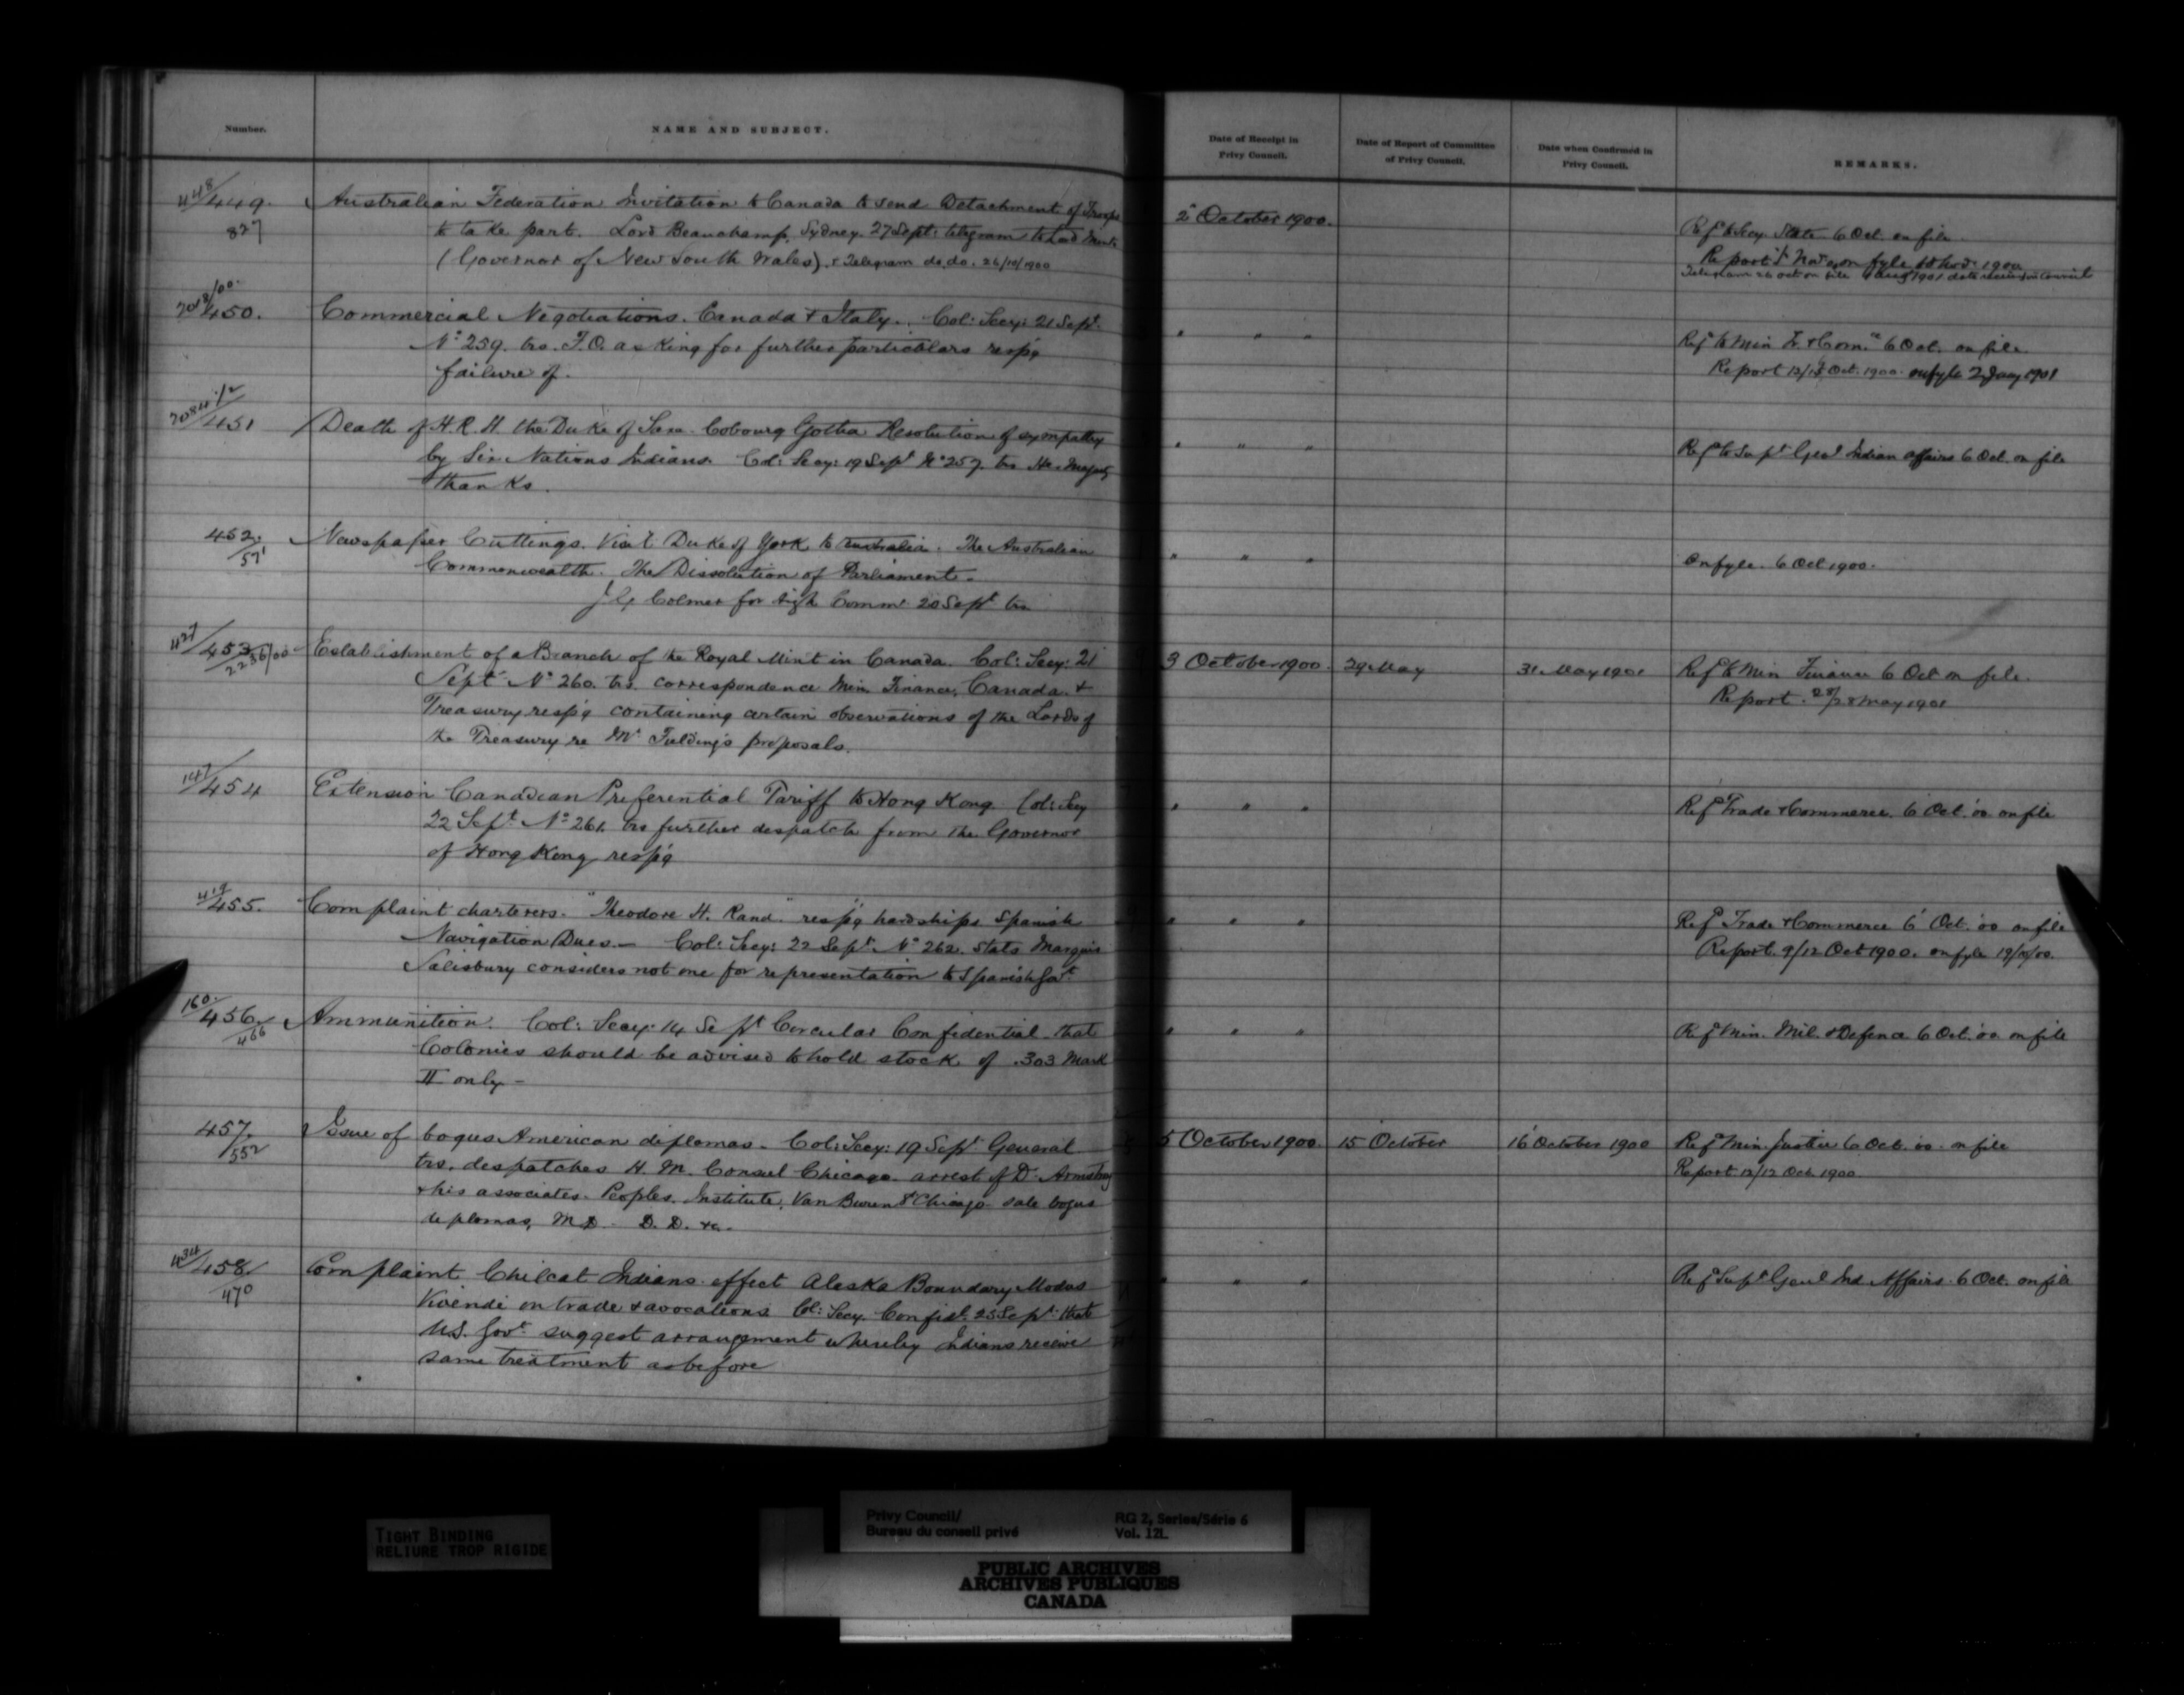 Number.
NAME AND SUBJECT.
Date of Receipt in
Privy Council.
Date of Report of Committee
of Privy Council.
Date when Confirmed in
Privy Council.
REMARKS.
448/449.
827
Australian Federation Invitation to Canada to send Detachment of Troops
to take part. Lord Beauchamp, Sydney. 27 Sept: telegram to Lord Minto
(Governor of New South Wales). & Telegram do. do. 26/10/1900
2 October 1900.
Refd to Secy State 6 Oct. on file.
Report Nov on fyle Nov 1900
Telegram 26 Oct on file
7018/00.
450.
Commercial Negotiations. Canada & Italy. Col: Secy: 21 Sept.
No 259. trs. F.O. asking for further particulars resp'g
failure of.
" " "
Refd to Min Tr. & Com.ce 6 Oct. on file.
Report 12/13 Oct. 1900. on fyle 2 Jany 1901
7084 1/2
/451
Death of H.R.H. the Duke of Saxe Cobourg Gotha Resolution of sympathy
by Six Nations Indians. Col: Secy: 19 Sept No 257. trs Her Majesty's
thanks.
" " "
Refd to Supt Genl Indian Affairs 6 Oct. on file
452.
/571
Newspaper Cuttings. Visit Duke of York to Australia. The Australian
Commonwealth. The Dissolution of Parliament.
J G Colmer for High Commr 20 Sept trs
" " "
On fyle. 6 Oct 1900.
427/453
2256/00
Establishment of a Branch of the Royal Mint in Canada. Col: Secy: 21
Sept No 260. trs. correspondence Min. Finance, Canada. &
Treasury resp'g containing certain observations of the Lords of
the Treasury re Mr Fielding's proposals.
3 October 1900.
29 May
31 May 1901
Refd to Min Finance 6 Oct on file.
Report. 28/28 May 1901
147/454
Extension Canadian Preferential Tariff to Hong Kong. Col: Secy
22 Sept. No 261. trs further despatch from the Governor
of Hong Kong resp'g
" " "
Refd Trade & Commerce. 6 Oct. '00 on file
419/455.
Complaint charterers. "Theodore H. Rand" resp'g hardships Spanish
Navigation Dues. — Col: Secy: 22 Sept No 262. Stats Marquis
Salisbury considers not one for representation to Spanish Govt.
" " "
Refd Trade & Commerce 6 Oct. '00 on file
Report. 9/12 Oct 1900. on fyle 19/10/00.
160./456
/466
Ammunition. Col: Secy: 14 Sept Circular Confidential - that
Colonies should be advised to hold stock of .303 Mark
II only -
" " "
Refd Min. Mil. & Defence 6 Oct. '00 on file
457.
/552
Issue of bogus American diplomas. Col: Secy: 19 Sept General
trs. despatches H. M. Consul Chicago arrest of Dr Armstrong
& his associates. Peoples. Institute, Van Buren St Chicago sale bogus
diplomas, M.D. D.D. &c.
5 October 1900.
15 October
16 October 1900
Refd Min. Justice 6 Oct. '00 on file
Report 12/12 Oct. 1900
434/458
/470
Complaint Chilcat Indians effect Alaska Boundary Modus
Vivendi on trade & avocations. Col: Secy. Confidl. 25 Sept. that
U.S. Govt. suggest arrangement whereby Indians receive
same treatment as before
" " "
Refd Supt Genl Ind Affairs 6 Oct. on file
TIGHT BINDING
RELIURE TROP RIGIDE
Privy Council/
Bureau du conseil privé
RG 2, Series/Série 6
Vol. 12L
PUBLIC ARCHIVES
ARCHIVES PUBLIQUES
CANADA